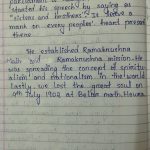 started his speech by saying as
"sisters and brothers." It leave a
mark on every peoples' heart present
there.
He established Ramakrishna
Math and Ramakrishna mission. He
was spreading the concept of spiritu-
alism and nationalism in the world
Lastly we lost the great soul on
4th July 1902 at Belur math, Howra